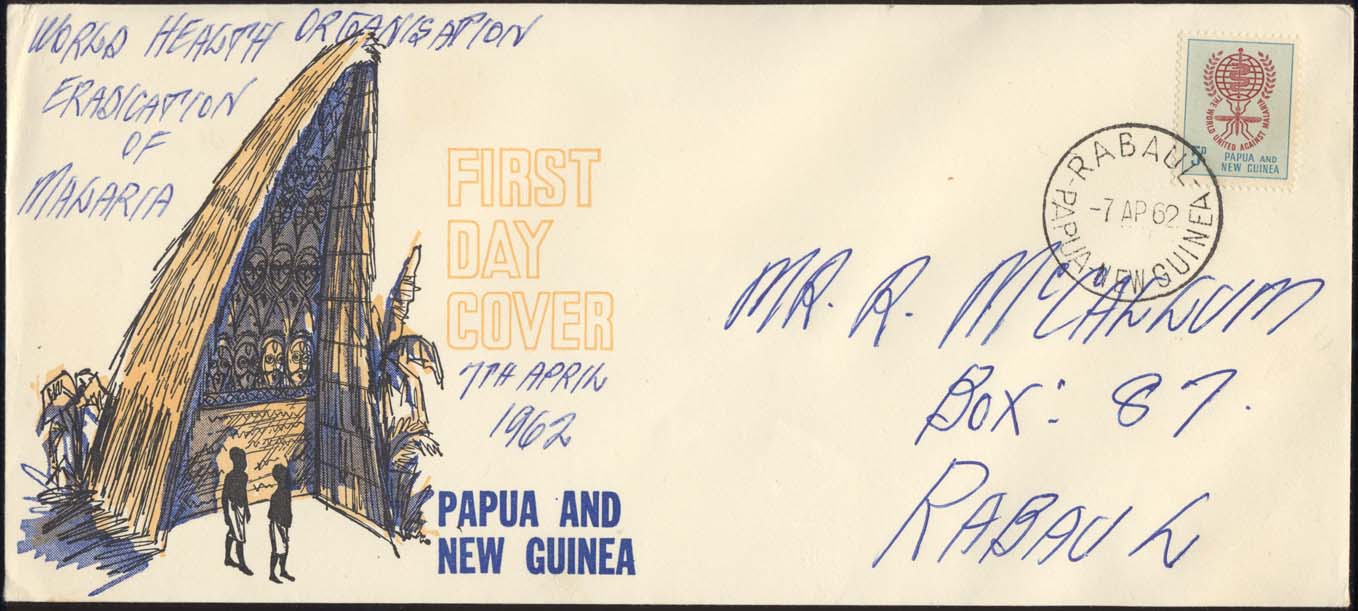 WORLD HEALTH ORGANISATION
ERADICATION
OF
MALARIA
FIRST
DAY
COVER
7TH APRIL
1962
PAPUA AND
NEW GUINEA
THE WORLD UNITED AGAINST MALARIA
5D
PAPUA AND
NEW GUINEA
RABAUL
-7 AP 62
PAPUA-NEW GUINEA
MR. R. McCALLUM
BOX: 87.
RABAUL